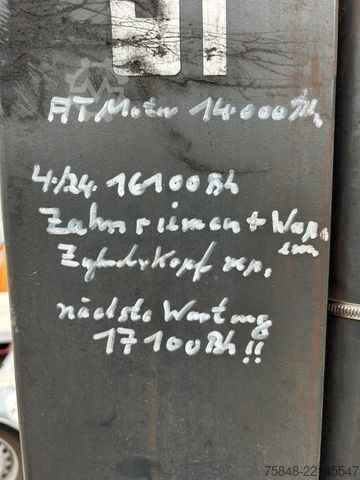 AT Motor 14.000 Bh
4./24. 16100 Bh
Zahnriemen + Wapu
Zylinderkopf rep.
nächste Wartung
17100 Bh !!
75848-22145547